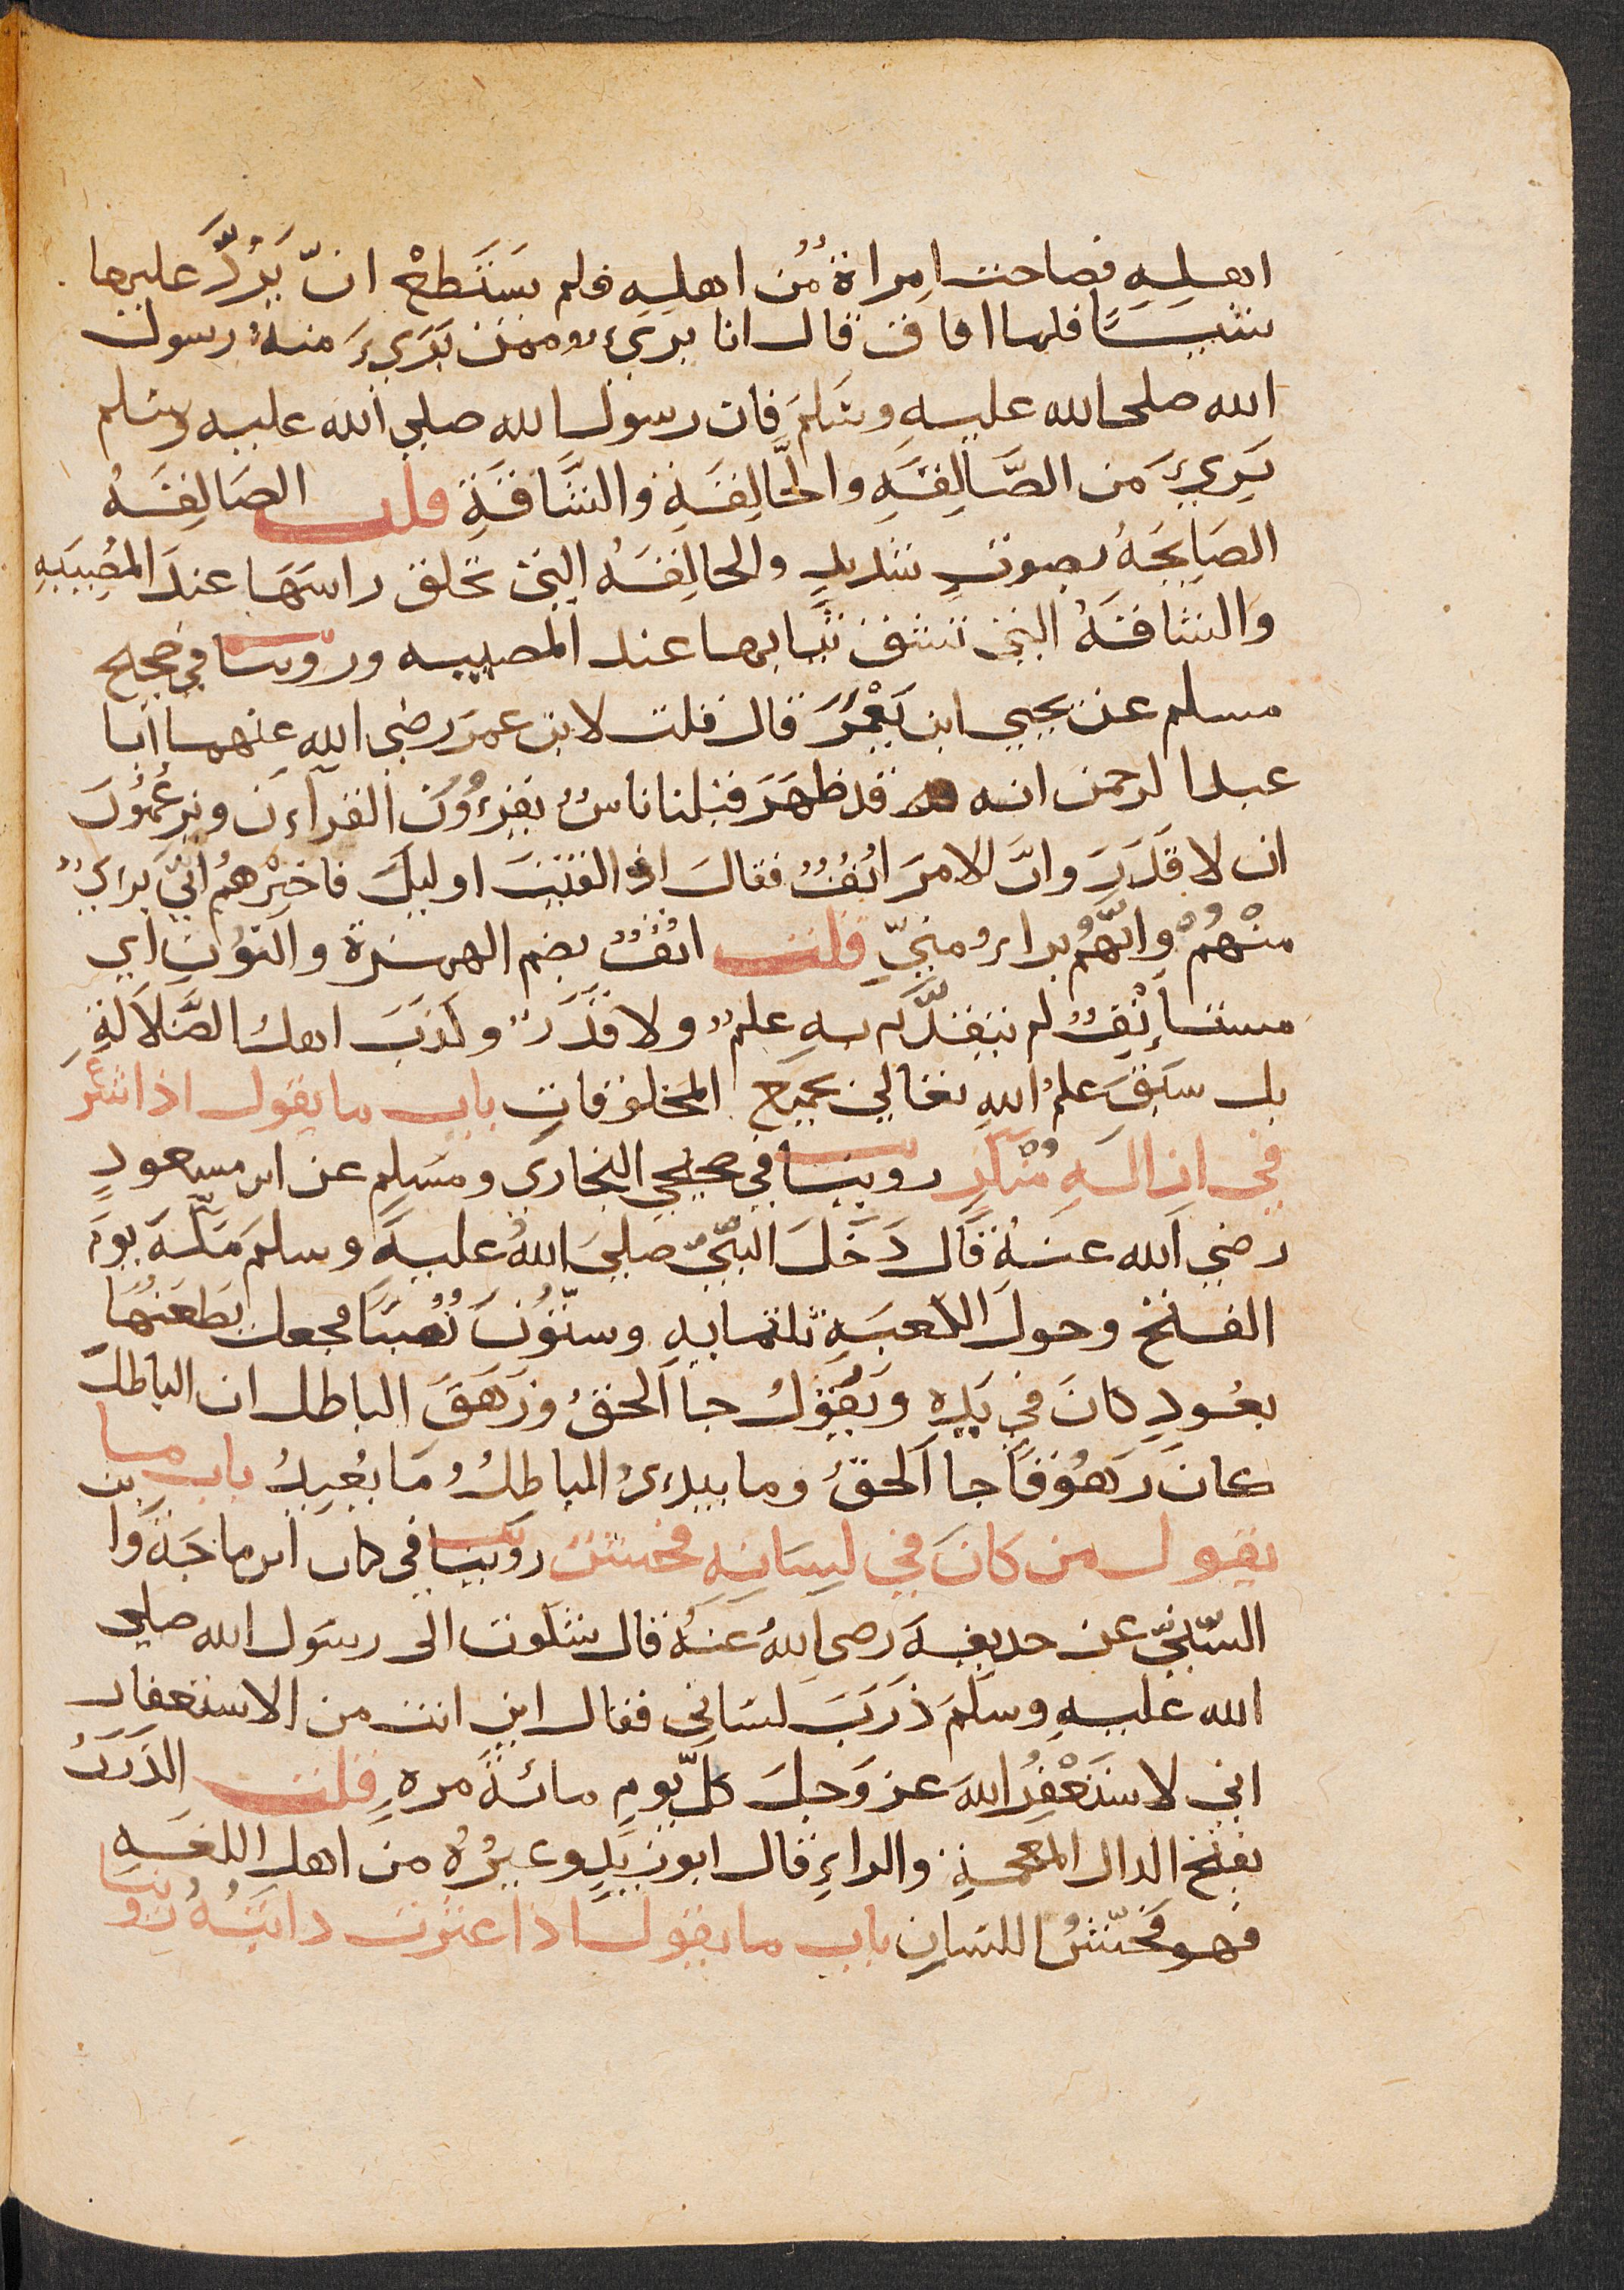 اهلِهِ فصاحت امراة مُن اهلِهِ فلم يَسْتَطعْ انّ يَرُدَّ عليها
شيًا فلما افاق قال انا بريءٌ ممن بَرِيءَ منهُ رسول
الله صلى الله عليهِ وسَلمَ فان رسول الله صلي الله عليه وسلم
بَرِيءَ من الصَّالِقَهِ والحَّالِقَهِ والشَّاقَةِ قلت الصَالِقَهُ
الصَايحَهُ بصوتٍ شديدٍ والحالِقَهُ التي تحلق راسَهَا عندَ المُصِيبَهِ
والشاقَهُ التي تشق ثيابها عند المصيبه وروينا في صحيح
مسلم عن يحيي ابن يَعْمَرَ قال قلت لابن عمرَ رضي الله عنهما أبا
عبد الرحمن انه قد ظهَرَ قبلنا ناسٌ يقرءُونَ القرآءن ويزعُمُونَ
ان لا قَدَرَ وانَّ الامرَ انُفٌ فقالَ اذا لقيتَ اوليكَ فاخبِرْهمُ انّي بري
منْهُمْ وانَّهُم براءُ منِّي قلت انُفٌ بضم الهمزة والنوُنِ اي
مستأنِفٌ لم يتقدَّم بهِ علم ولا قَدَرٌ وكذبَ اهل الضَّلاَلةِ
بل سبَقَ علمُ اللهِ تعالي بجميع المخلوقاتِ باب ما يقول اذا شرَعَ
في ازالهِ مُنْكَرٍ روينا في صحيحي البخاري ومسَلم عن ابن مسعودٍ
رضي الله عنهُ قال دَخَلَ النبّيّ صلي اللهُ عليهِ وسلمَ مَكَّهَ يومَ
الفتح وحولَ الكعبَهِ ثلثمايهِ وستّوُنَ نُصُبًا فجعل يَطعَنُهَا
بعُودٍ كانَ في يَدِهِ ويَقوُلُ جا الحقُ وزَهَقَ الباطل ان الباطلَ
كانَ زهُوقًا جا الحقُ وما يبديءُ الباطلُ ومَا يعُيدُ باب ما
يقول من كانَ في لِسَانه فحش روَينا في كتاب ابن ماجَة وابن
السّنيّ عن حديفهَ رضي اللهُ عَنهُ قال شكوت الى رسول الله صلي
الله عليهِ وسلمَ ذَرَبَ لسَاني فقال اين انت من الاستغفار
اني لاستَغْفِرُ اللهَ عز وَجلَ كلَّ يومٍ مائةَ مرهٍ قلت الذَرَبُ
بفتح الدال المعجمةِ والراءِ قال ابو زيدٍ وغيرُهُ من اهل اللغهِ
هو فحشُ اللسَانِ باب ما يقول اذا عثرت دابتُهُ روينا